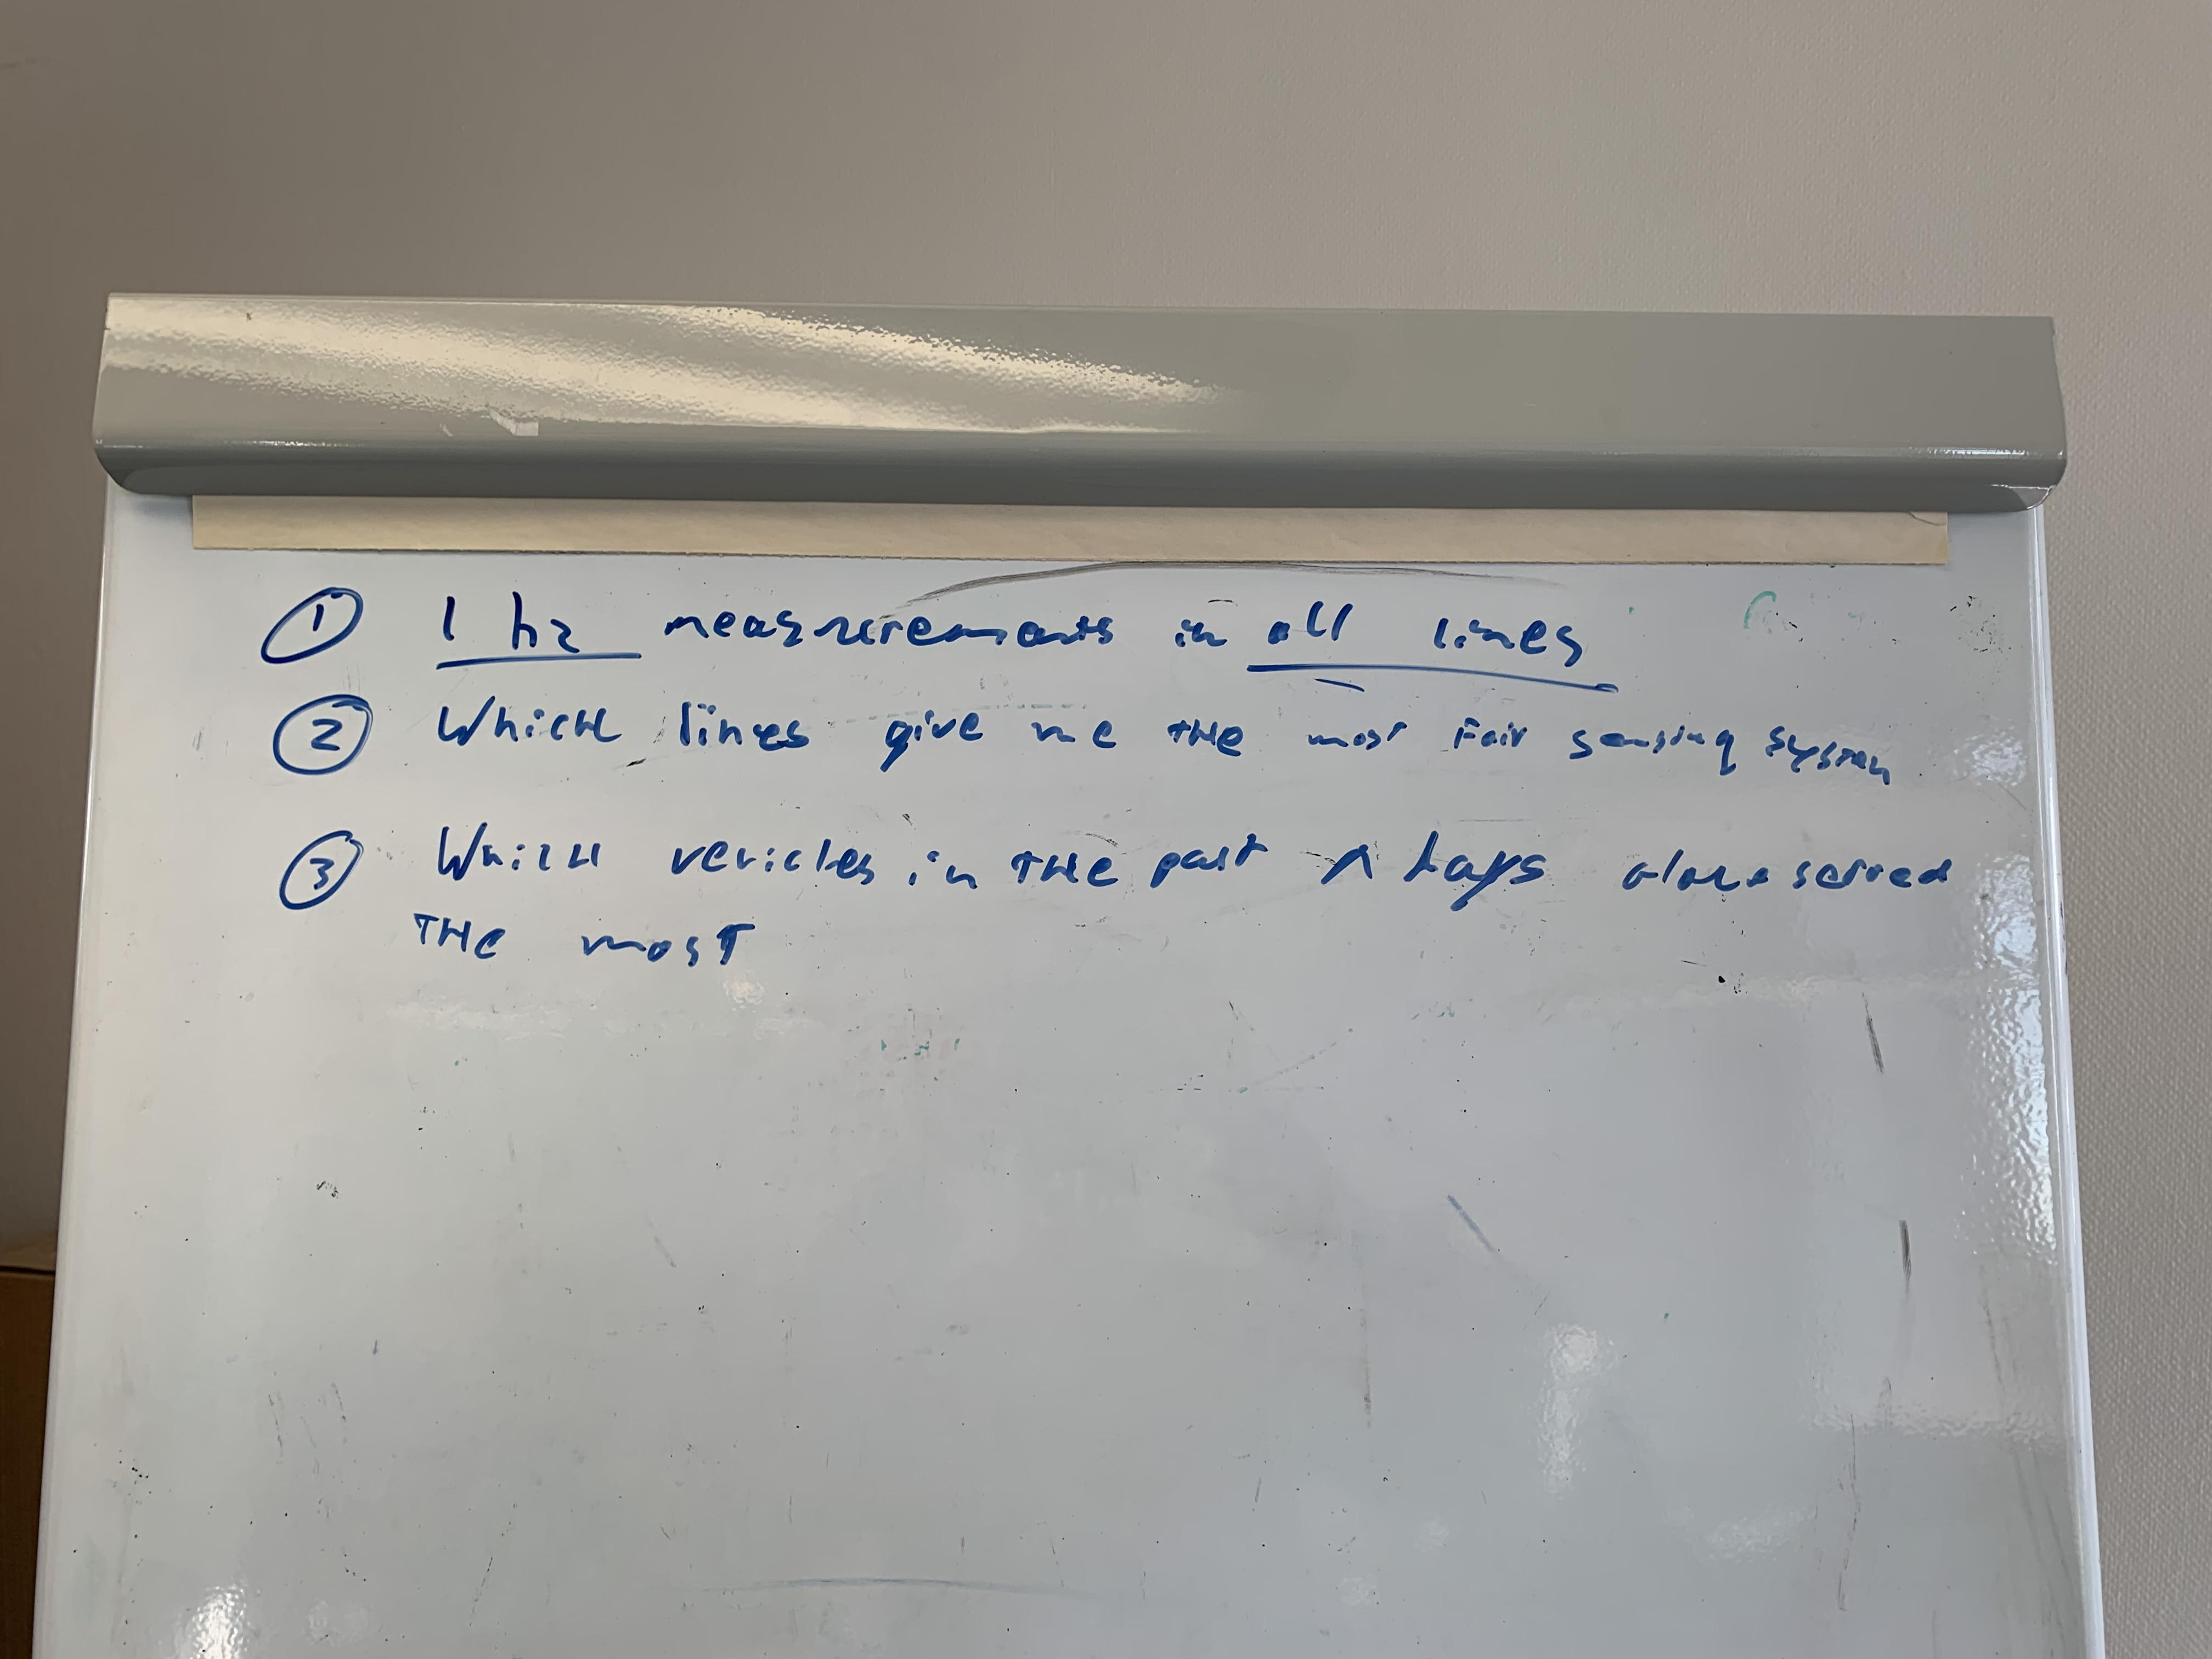 ① 1 hz measurements in all lines
② Which lines give me the most fair sensing system
③ Which vehicles in the past days served
THE most